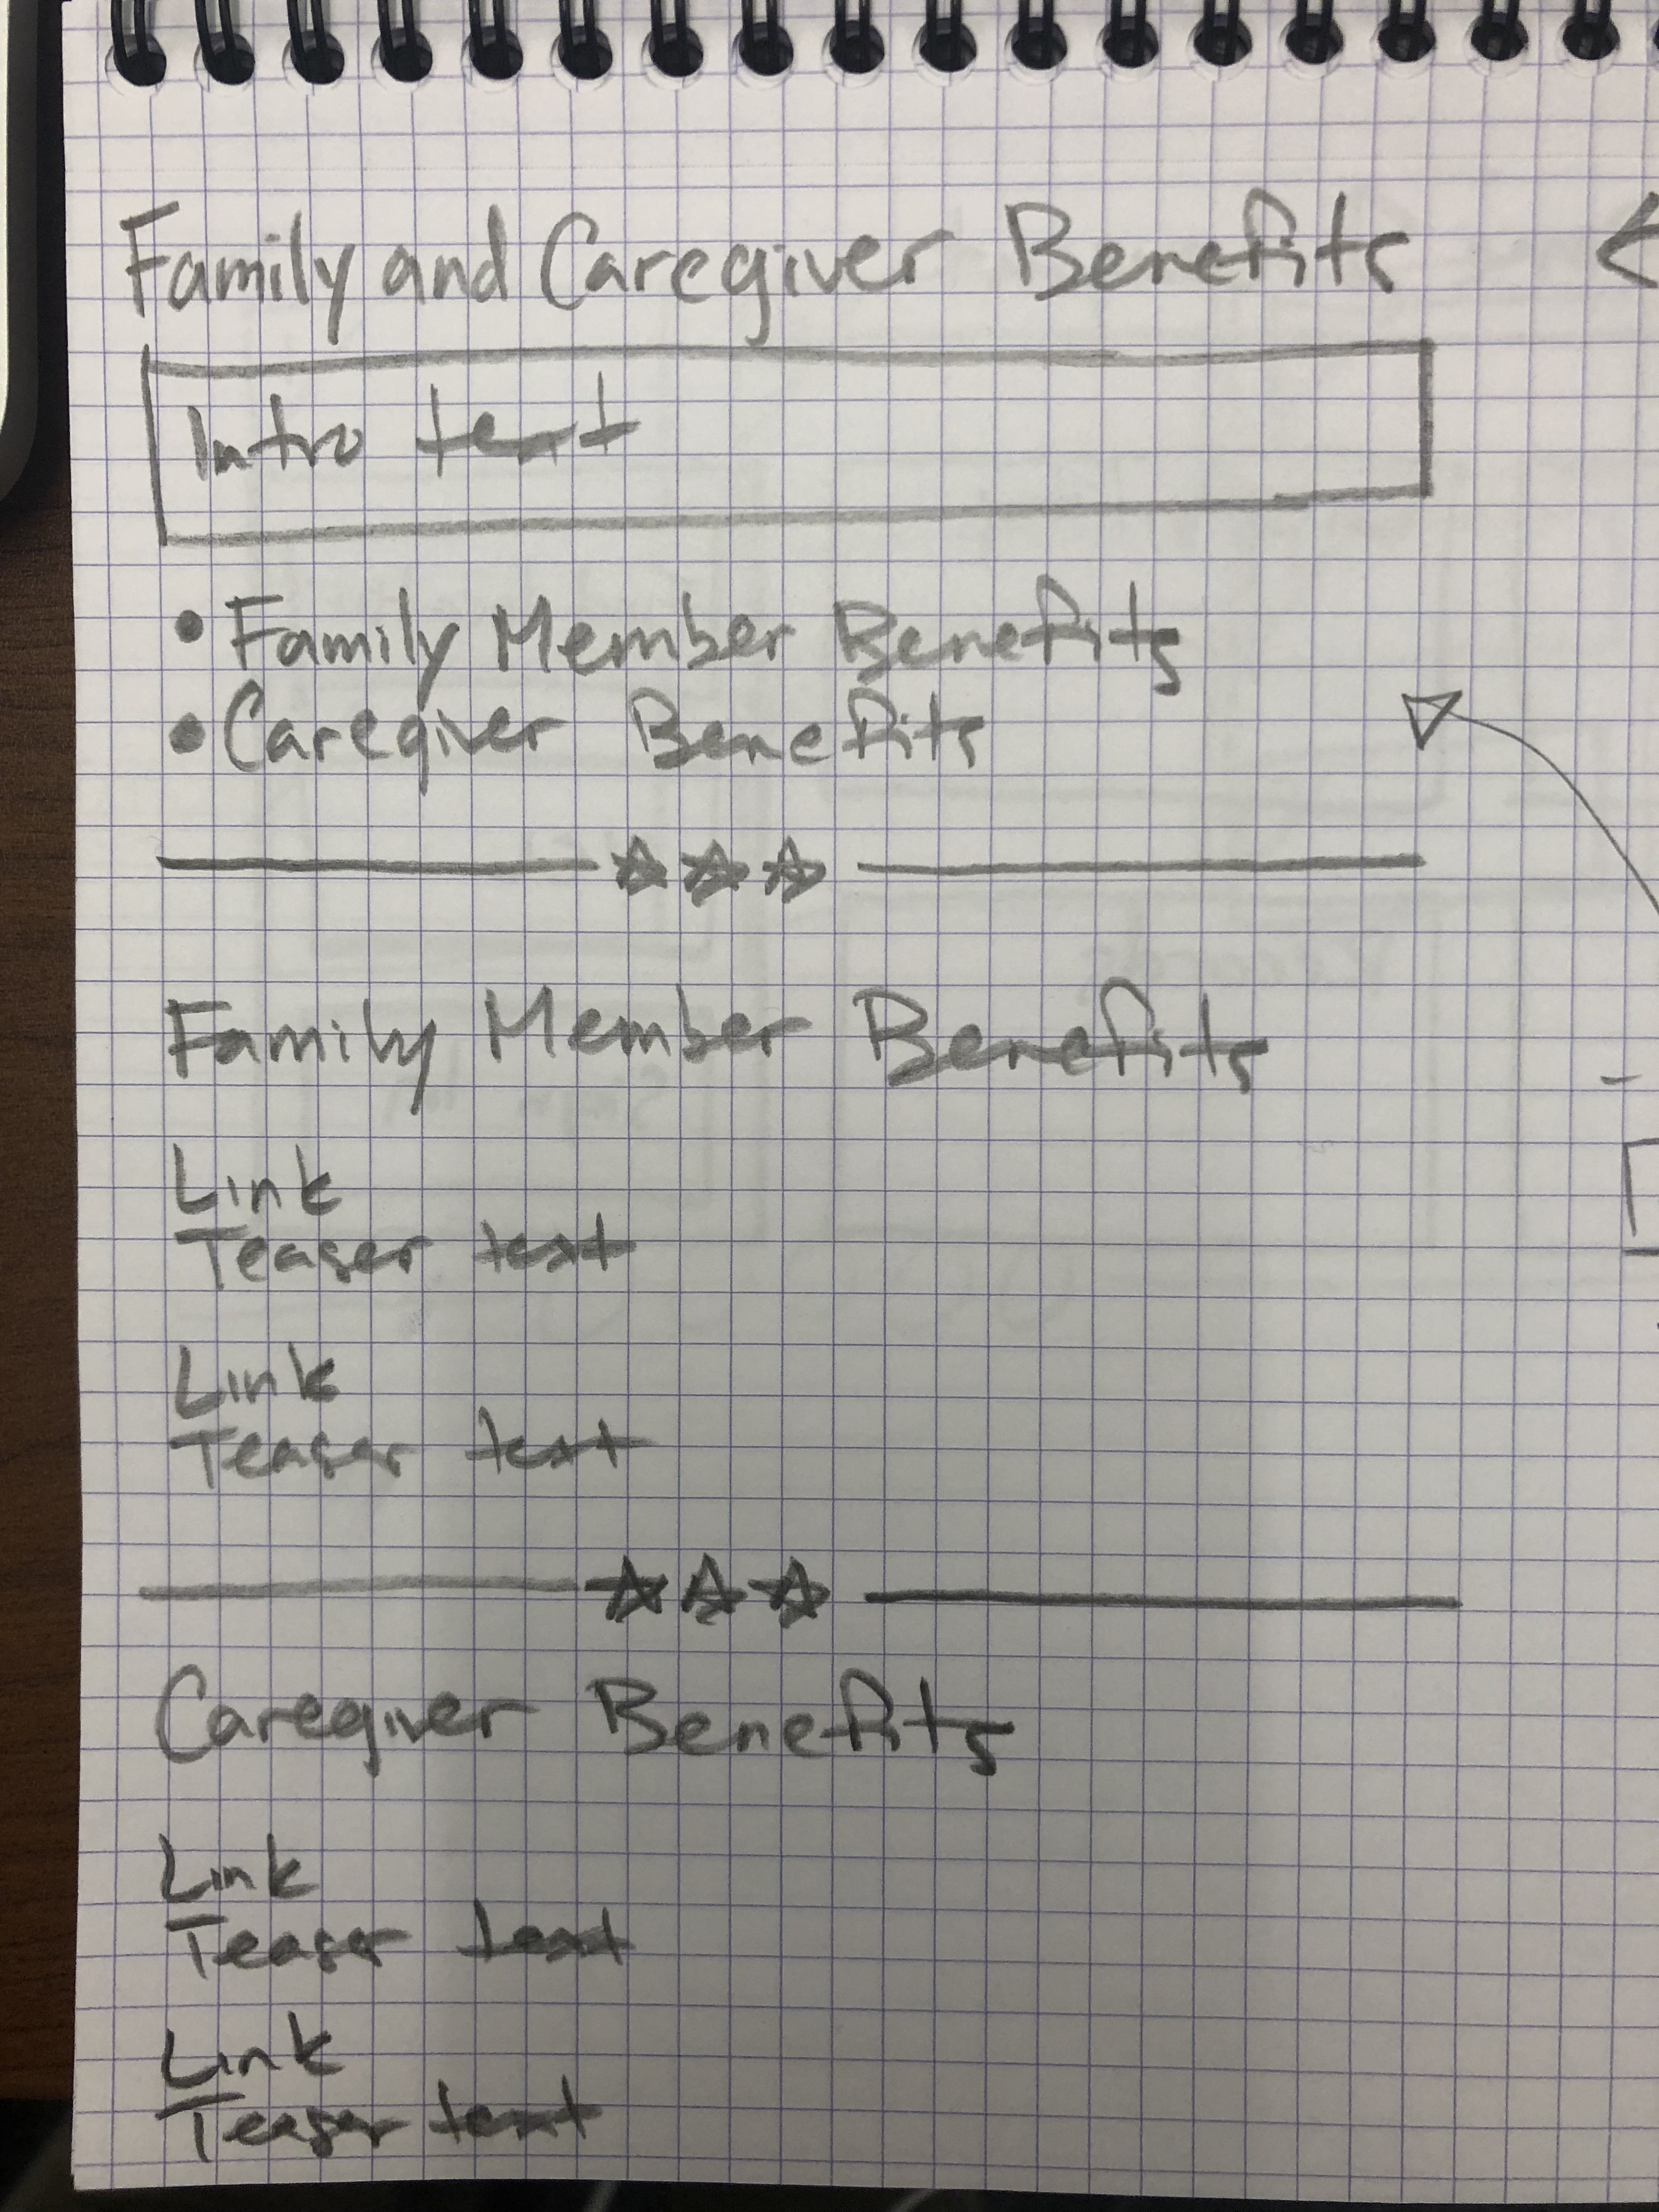 Family and Caregiver Benefits
Intro text
• Family Member Benefits
• Caregiver Benefits
Family Member Benefits
Link
Teaser text
Link
Teaser text
Caregiver Benefits
Link
Teaser text
Link
Teaser text